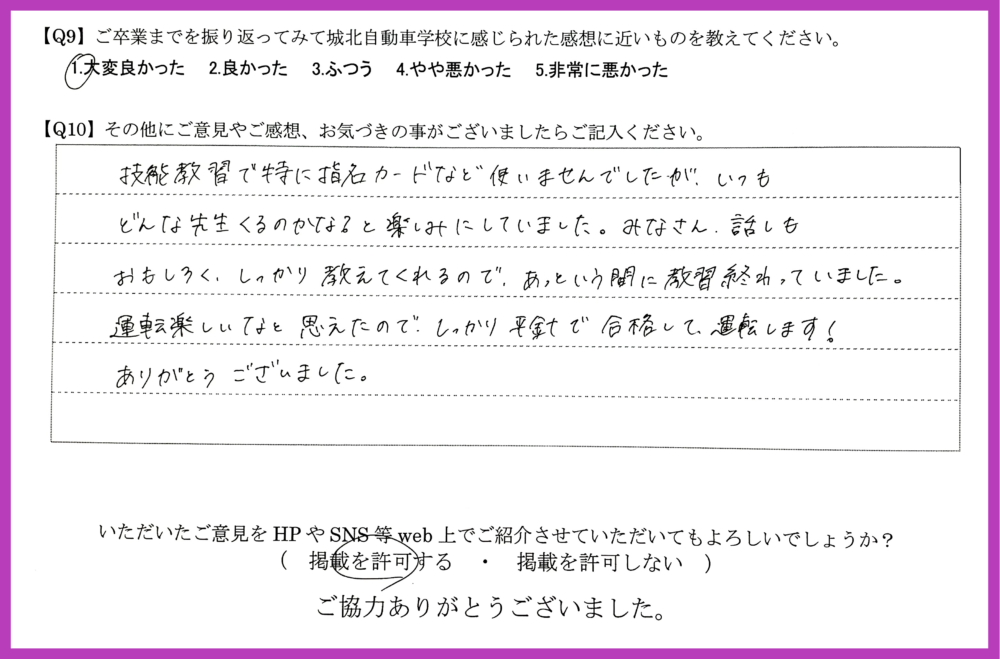 【Q9】ご卒業までを振り返ってみて城北自動車学校に感じられた感想に近いものを教えてください。
1.大変良かった 2.良かった 3.ふつう 4.やや悪かった 5.非常に悪かった
【Q10】その他にご意見やご感想、お気づきの事がございましたらご記入ください。
技能教習で特に指名カードなど使いませんでしたが、いつも
どんな先生くるのかなぁと楽しみにしていました。みなさん、話しも
おもしろく、しっかり教えてくれるので、あっという間に教習終わっていました。
運転楽しいなと思えたので、しっかり平針で合格して、運転します!
ありがとうございました。
いただいたご意見をHPやSNS等web上でご紹介させていただいてもよろしいでしょうか?
( 掲載を許可する ・ 掲載を許可しない )
ご協力ありがとうございました。